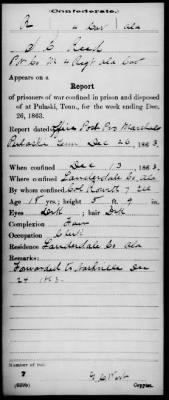 (Confederate.)
R 4 Cav Ala
S. C. Reed
Pvt Co M 4 Regt Ala Cav
Appears on a
Report
of prisoners of war confined in prison and disposed
of at Pulaski, Tenn., for the week ending Dec.
26, 1863.
Report dated Office Post Pro Marshals
Pulaski Tenn Dec 26, 1863.
When confined Dec 13, 1863.
Where confined Lauderdale Co Ala
By whom confined Col
Age 18 yrs; height 5 ft. 9 in.
Eyes Dark; hair Drk
Complexion Fair
Occupation Clerk
Residence Lauderdale Co Ala
Remarks:
Forwarded to Nashville Dec
24 1863.
Number of roll:
7
(639b) Copyist.